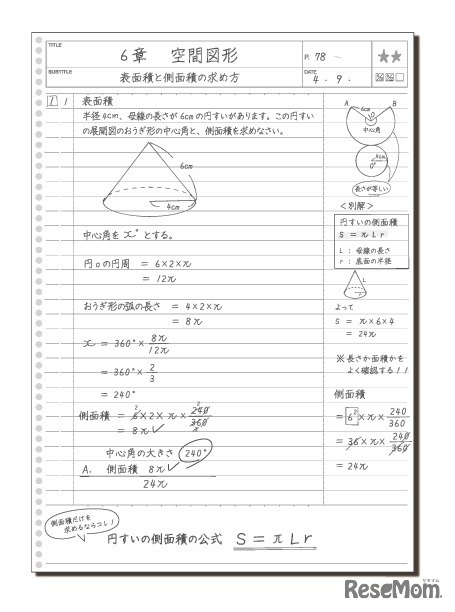 TITLE
6章 空間図形
P. 78 ~
★★
SUBTITLE
表面積と側面積の求め方
DATE
4 . 9 .
1 1 表面積
半径4cm、母線の長さが6cmの円すいがあります。この円すい
の展開図のおうぎ形の中心角と、側面積を求めなさい。
6cm
4cm
中心角を x° とする。
円oの円周 = 6×2×π
= 12π
おうぎ形の弧の長さ = 4×2×π
= 8π
x = 360°× 8π/12π
= 360°× 2/3
= 240°
側面積 = 6×2×π× 240/360
2
= 8π
中心角の大きさ 240°
A. 側面積 8π
24π
A
B
6cm
O
中心角
4cm
O'
長さが等しい
<別解>
円すいの側面積
S = πLr
L : 母線の長さ
r : 底面の半径
L
r
よって
S = π×6×4
= 24π
※長さか面積かを
よく確認する!!
側面積
= 6²×π× 240/360
= 36×π× 240/360
= 24π
側面積だけを
求めるならコレ!
円すいの側面積の公式 S=πLr
リセマム
ReseMom.